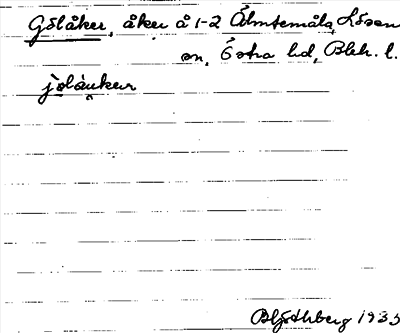 Gölåker, åker å 1-2 Älmtemåla, Lösen
sn, Östra hd, Blek. l.
jö̀låuker
Blythberg 1935